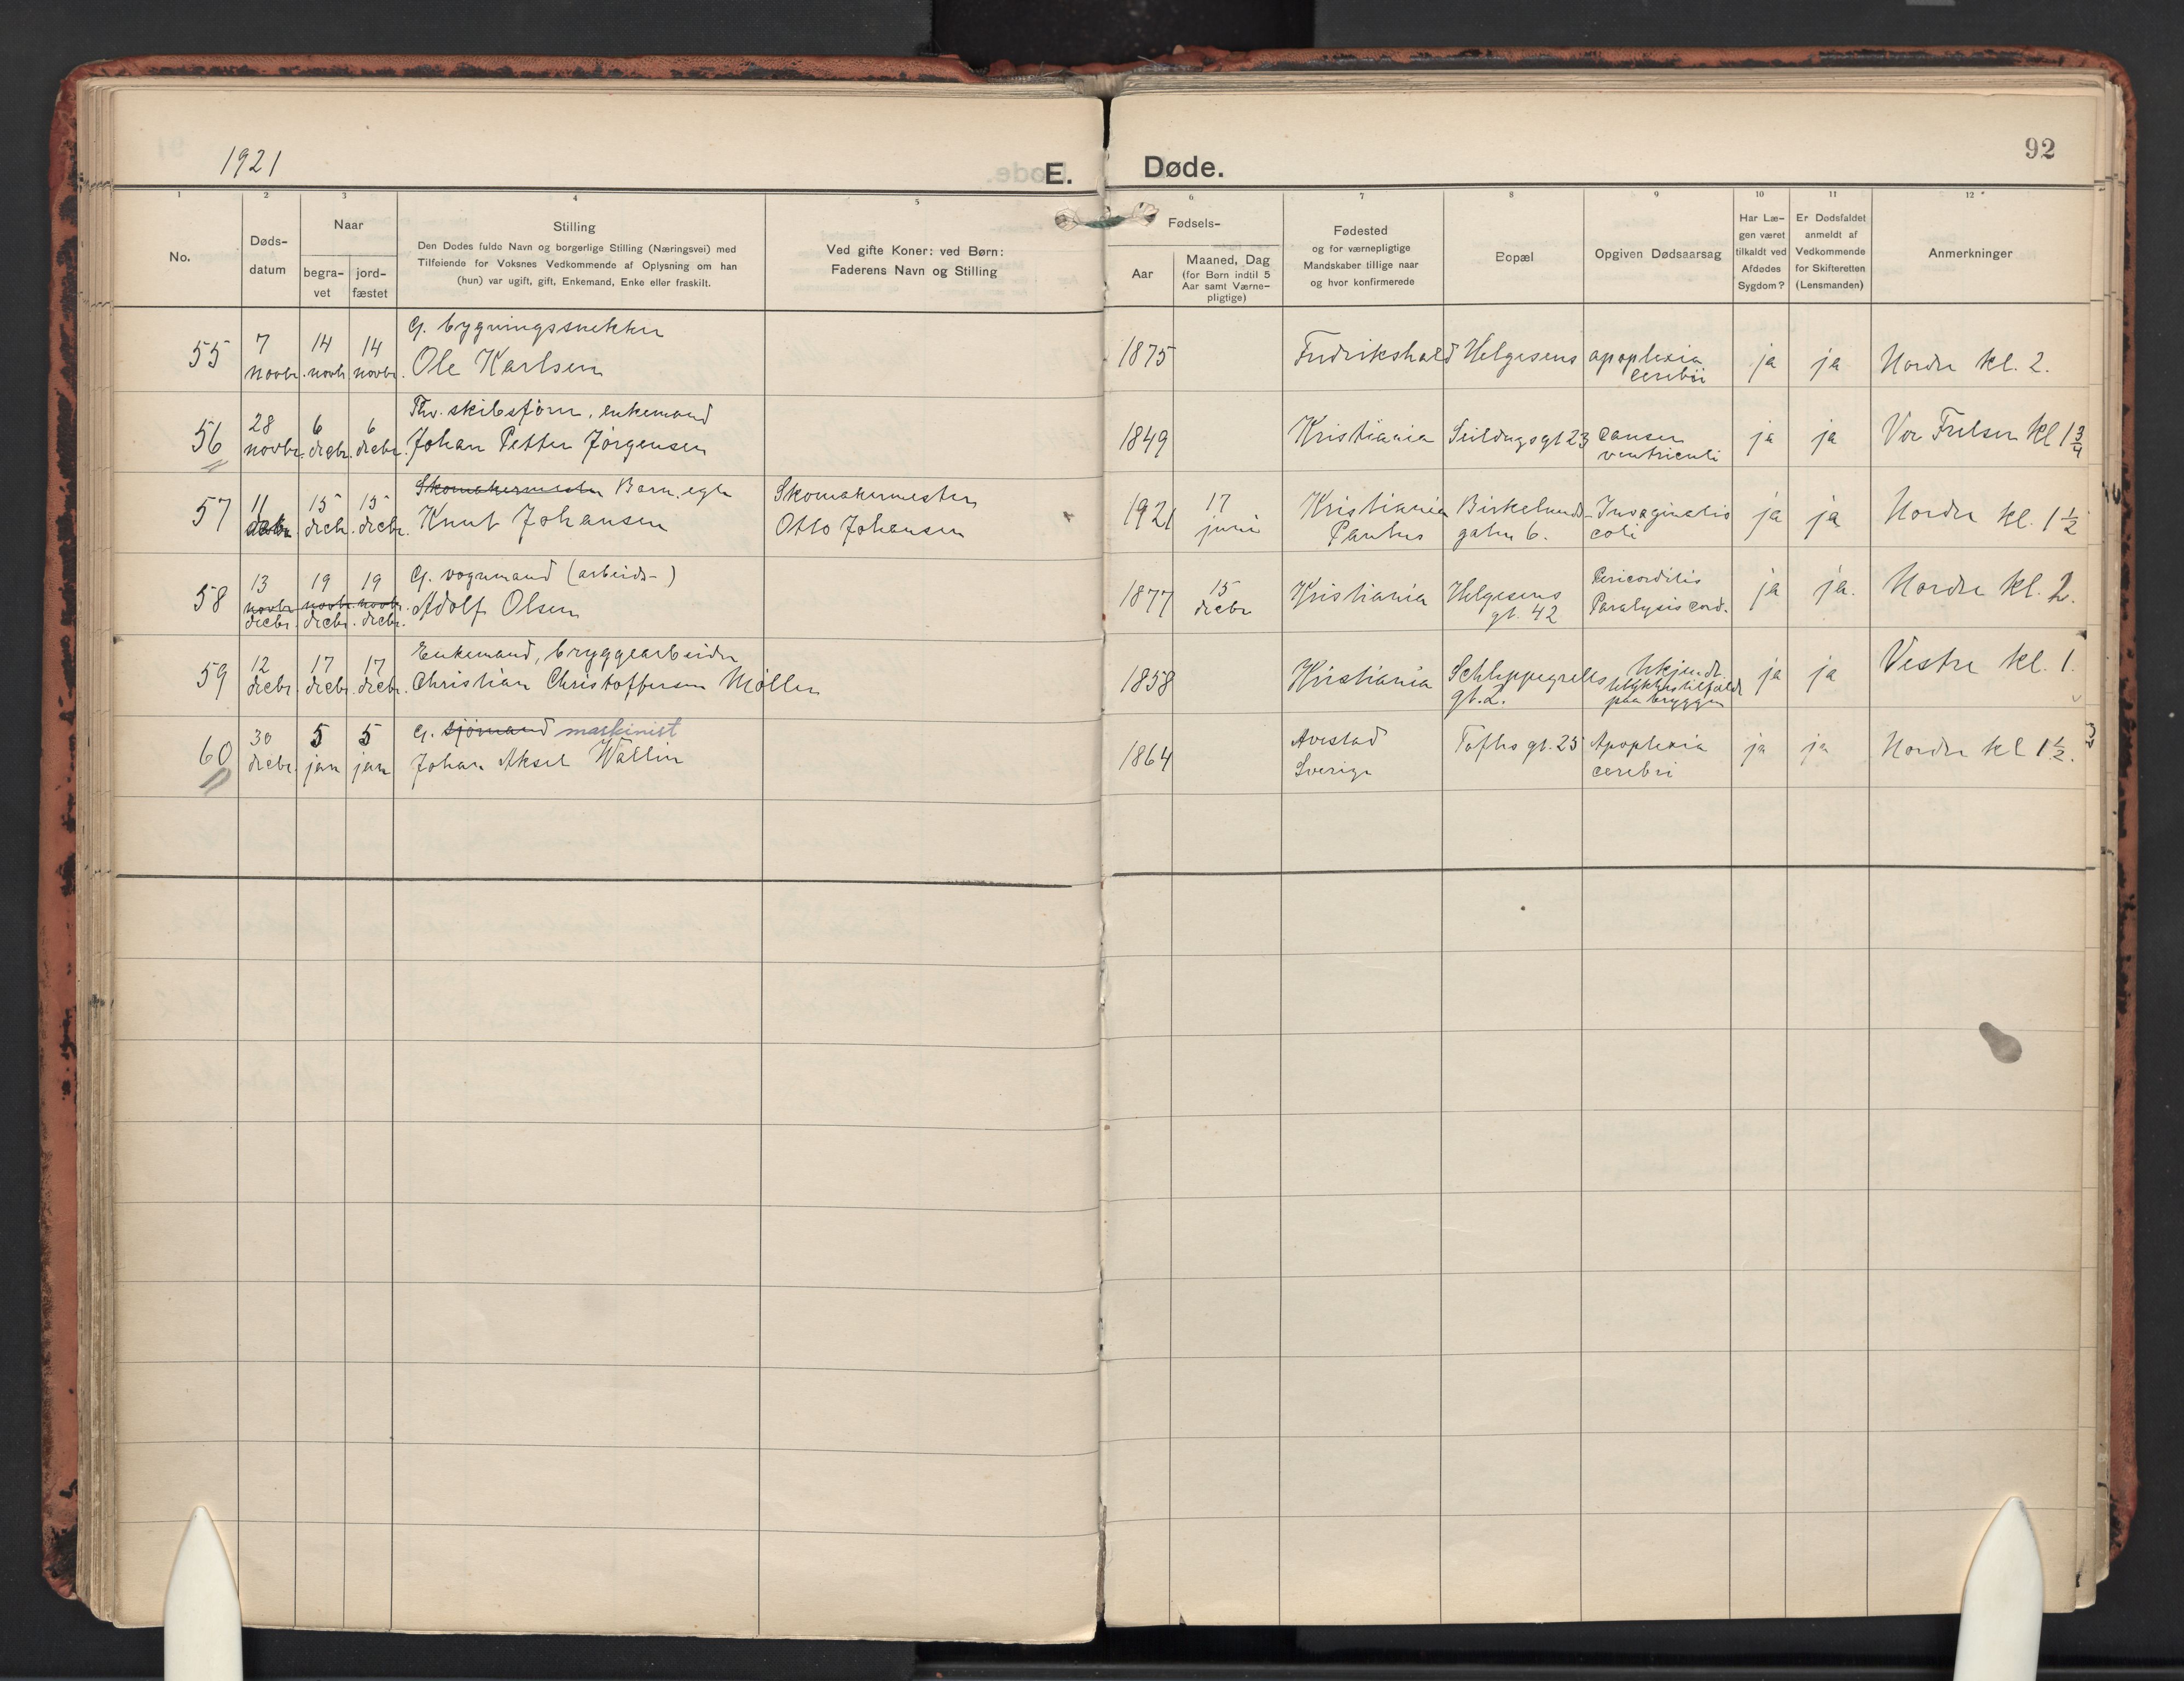 1921
E. Døde.
92
1 2 3 4 5 6 7 8 9 10 11 12
No.
Døds-
datum
Naar
begra-
vet
jord-
fæstet
Stilling
Den Dødes fulde Navn og borgerlige Stilling (Næringsvei) med
Tilføiende for Voksnes Vedkommende af Oplysning om han
(hun) var ugift, gift, Enkemand, Enke eller fraskilt.
Ved gifte Koner: ved Børn:
Faderens Navn og Stilling
Fødsels-
Aar
Maaned, Dag
(for Børn indtil 5
Aar samt Værne-
pligtige)
Fødested
og for værnepligtige
Mandskaber tillige naar
og hvor konfirmerede
Bopæl
Opgiven Dødsaarsag
Har Læ-
gen været
tilkaldt ved
Afdødes
Sygdom?
Er Dødsfaldet
anmeldt af
Vedkommende
for Skifteretten
(Lensmanden)
Anmerkninger
G. bygningssnekker
55 7 novbr. 14 novbr 14 novbr. Ole Karlsen 1875 Fredrikshald Helgesens apoplexia cerebri ja ja Nordre kl. 2.
Fhv. skibsfører, enkemand
56 28 novbr. 6 decbr. 6 decbr. Johan Petter Jörgensen 1849 Kristiania Seilduksgt 23 cancer ventriculi ja ja Vor Frelser kl 1 3/4
Skomakermester Barn, egte Skomakermester
57 11 decbr. 15 decbr. 15 decbr. Knut Johansen Otto Johansen 1921 17 juni Kristiania Paulus Birkelunds- gaten 6. Invaginatio coli ja ja Nordre kl. 1 1/2
G. vognmand (arbeids-)
58 13 novbr decbr. 19 novbr. decbr. 19 novbr. decbr. Adolf Olsen 1877 15 decbr Kristiania Helgesens gt. 42 Pericarditis Paralysis cord. ja ja. Nordre kl. 2.
Enkemand, bryggearbeider
59 12 decbr. 17 decbr. 17 decbr. Christian Christoffersen Möller 1858 Kristiania Schleppegrells gt. 2. Ukjendt Ulykkestilfælde paa bryggen ja ja Vestre kl. 1.
G. sjömand maskinist
60 30 decbr. 5 jan 5 jan Johan Aksel Wallin 1864 Avestad Sverige Toftes gt. 25 Apoplexia cerebri ja ja Nordre kl 1 1/2.